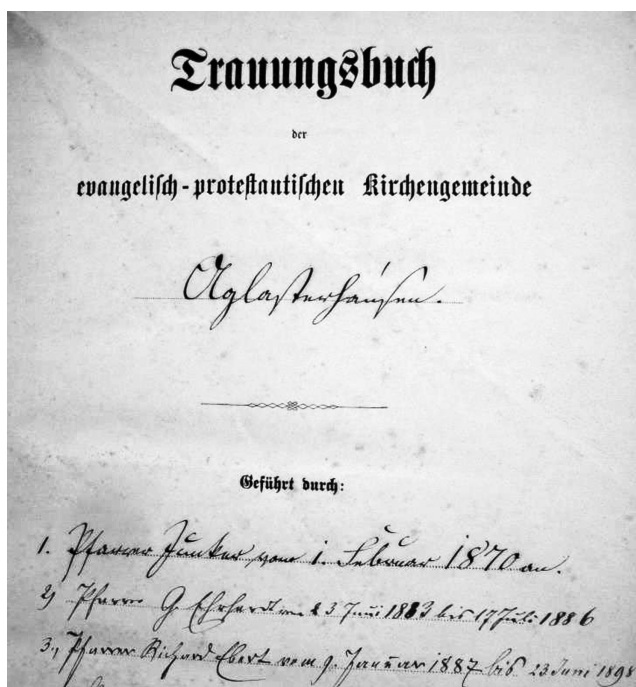 Trauungsbuch
der
evangelisch-protestantischen Kirchengemeinde
Aglasterhausen.
Geführt durch:
1. Pfarrer Junker vom 1. Februar 1870 an.
2) Pfarrer G. Ehrhardt 23 Juni 1883 bis 17 Juli 1886
3., Pfarrer Richard Ebert vom 9. Januar 1887 bis 23 Juni 1898